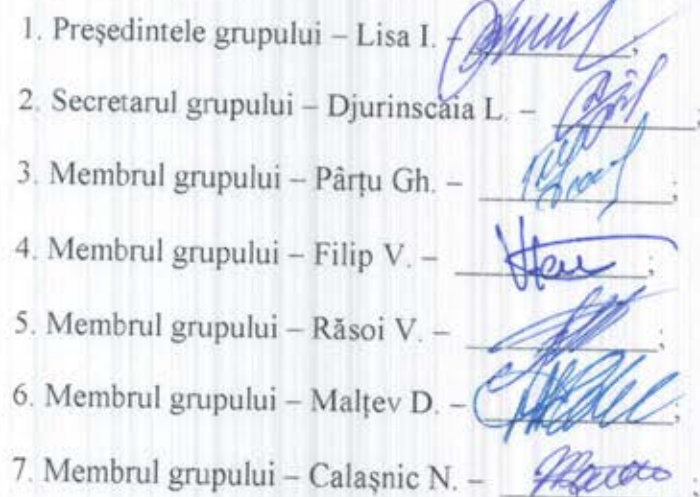 1. Președintele grupului – Lisa I. – ;
2. Secretarul grupului – Djurinscaia L. – ;
3. Membrul grupului – Pârțu Gh. – ;
4. Membrul grupului – Filip V. – ;
5. Membrul grupului – Răsoi V. – ;
6. Membrul grupului – Malțev D. – ;
7. Membrul grupului – Calașnic N. – .